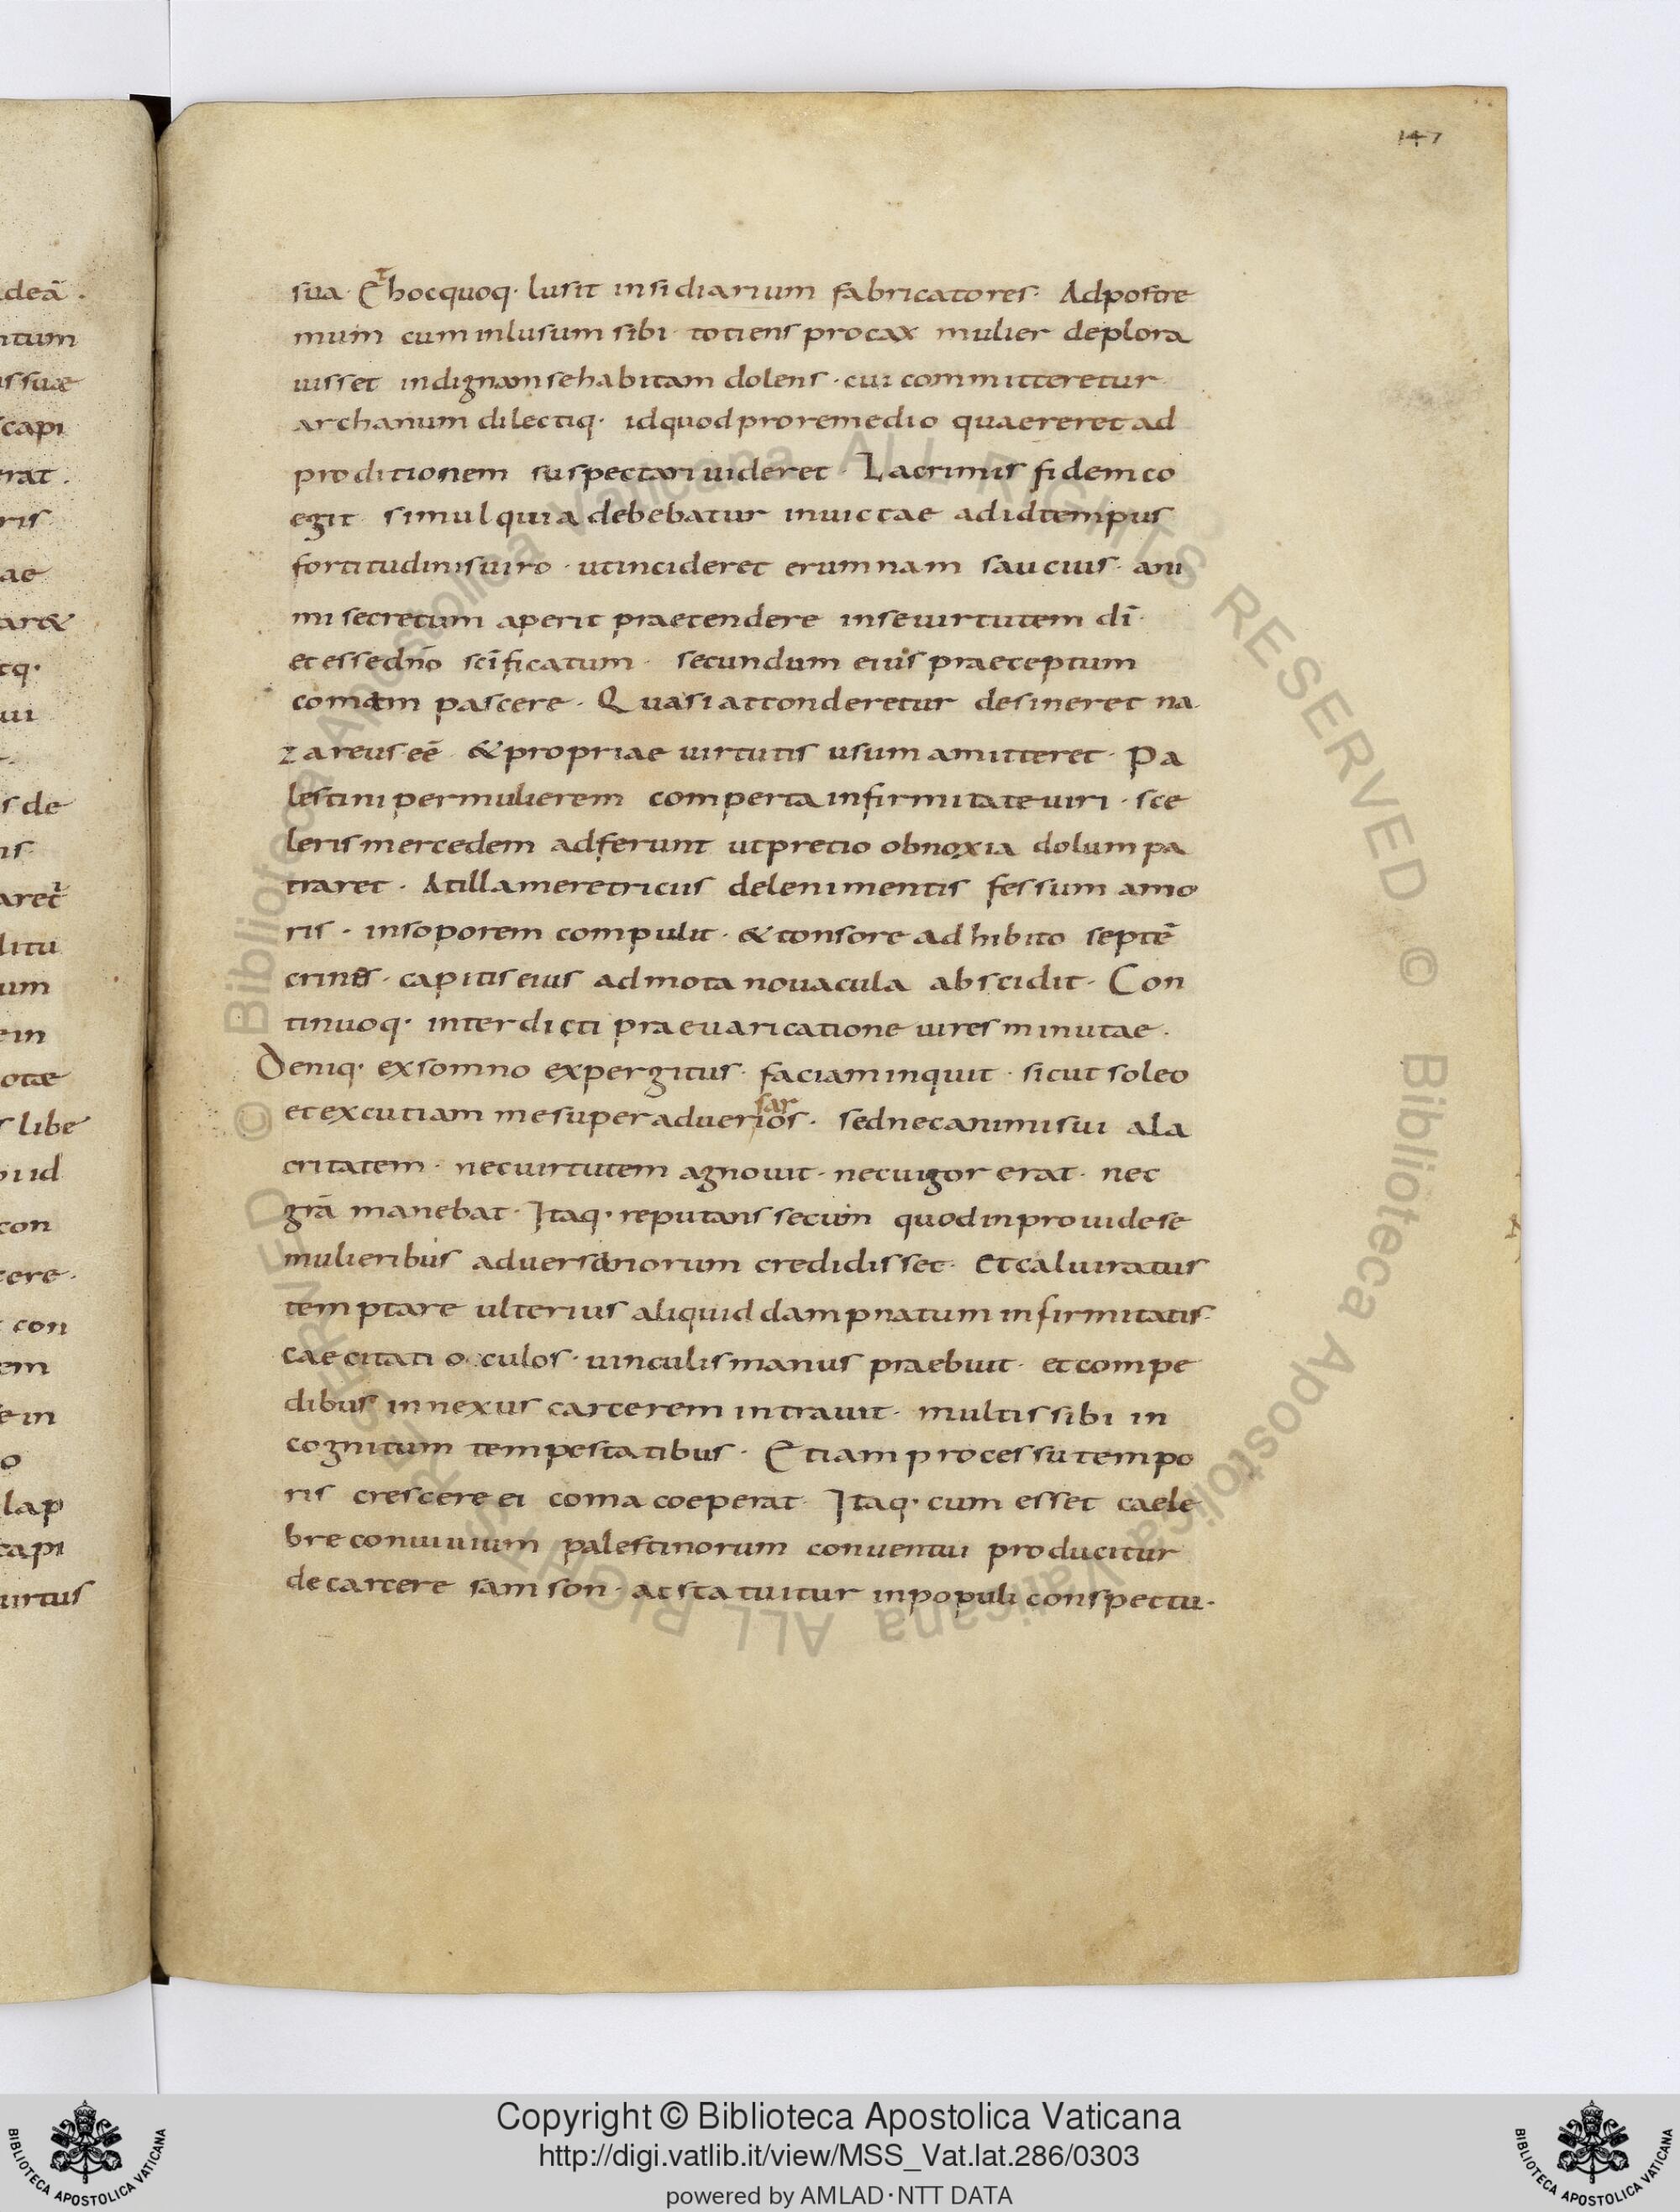 147
sua. Et hocquoq· lusit insidiarium fabricatores. Adpostre
mum cum inlusum sibi totiens procax mulier deplora
uisset indignamsehabitam dolens · cui committeretur
archanum dilectiq· idquodproremedio quaereretad
proditionem suspectari uideret · Lacrimis fidemco
egit simulquia debebatur inuictae adidtempus
fortitudinisuiro · utincideret erumnam saucius · ani
mi secretum aperit praetendere inseuirtutem dī·
etessedn̄o scīficatum · secundum eius praeceptum
comam pascere · Quasiattonderetur desineret na
zareuseē &propriae uirtutis usumamitteret · Pa
lestini permulierem comperta infirmitateuiri · sce
lerismercedem adferunt utpretio obnoxia dolumpa
traret · Atillameretricus delenimentis fessum amo
ris · insoporem compulit · &tonsore adhibito septē
crines · capitiseius admota nouacula abscidit · Con
tinuoq· interdicti praeuaricatione uires minutae ·
Deniq· exsomno expergitus · faciaminquit · sicut soleo
etexcutiam mesuperaduersarios · sednecanimisui ala
critatem · necuirtutem agnouit · necuigor erat · nec
grā manebat · Itaq· reputans secum quodinprouidese
mulieribus aduersariorum credidisset · Etcaluiratus
temptare ulterius aliquid dampnatum infirmitatis·
caecitati oculos · uinculismanus praebuit · etcompe
dibus innexus carcerem intrauit · multis sibi in
cognitum tempestatibus · Etiam processutempo
ris crescere ei coma coeperat · Itaq· cum esset caele
bre conuiuium palestinorum conuentui producitur
decarcere samson · acstatuitur inpopuli conspectu ·
deā ·
ntum
issuae
capi
erat ·
ris
ae
ar&
tq·
ui
s de
is
litu
um
ein
otae
s libe
con
cere ·
con
em
ein
o
lap
capi
uirtus
© Biblioteca Apostolica Vaticana ALL RIGHTS RESERVED © Biblioteca Apostolica Vaticana ALL RIGHTS RESERVED
BIBLIOTECA APOSTOLICA VATICANA
Copyright © Biblioteca Apostolica Vaticana
http://digi.vatlib.it/view/MSS_Vat.lat.286/0303
powered by AMLAD·NTT DATA
BIBLIOTECA APOSTOLICA VATICANA